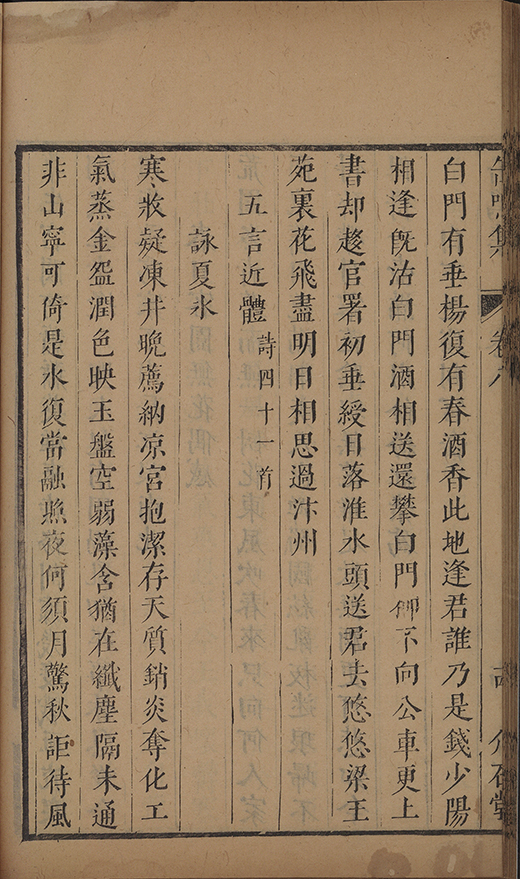 白門有垂楊復有春酒香此地逢君誰乃是錢少陽
相逢旣沽白門酒相送還攀白門柳不向公車更上
書却趍官署初垂綬日落淮水頭送君去悠悠梁王
苑裏花飛盡明日相思過汴州
五言近體 詩四十一首
詠夏氷
寒妝凝凍井晚薦納凉宮抱潔存天質銷炎奪化工
氣蒸金盌潤色映玉盤空弱藻含猶在纖塵隔未通
非山寧可倚是氷復當融照夜何須月驚秋詎待風